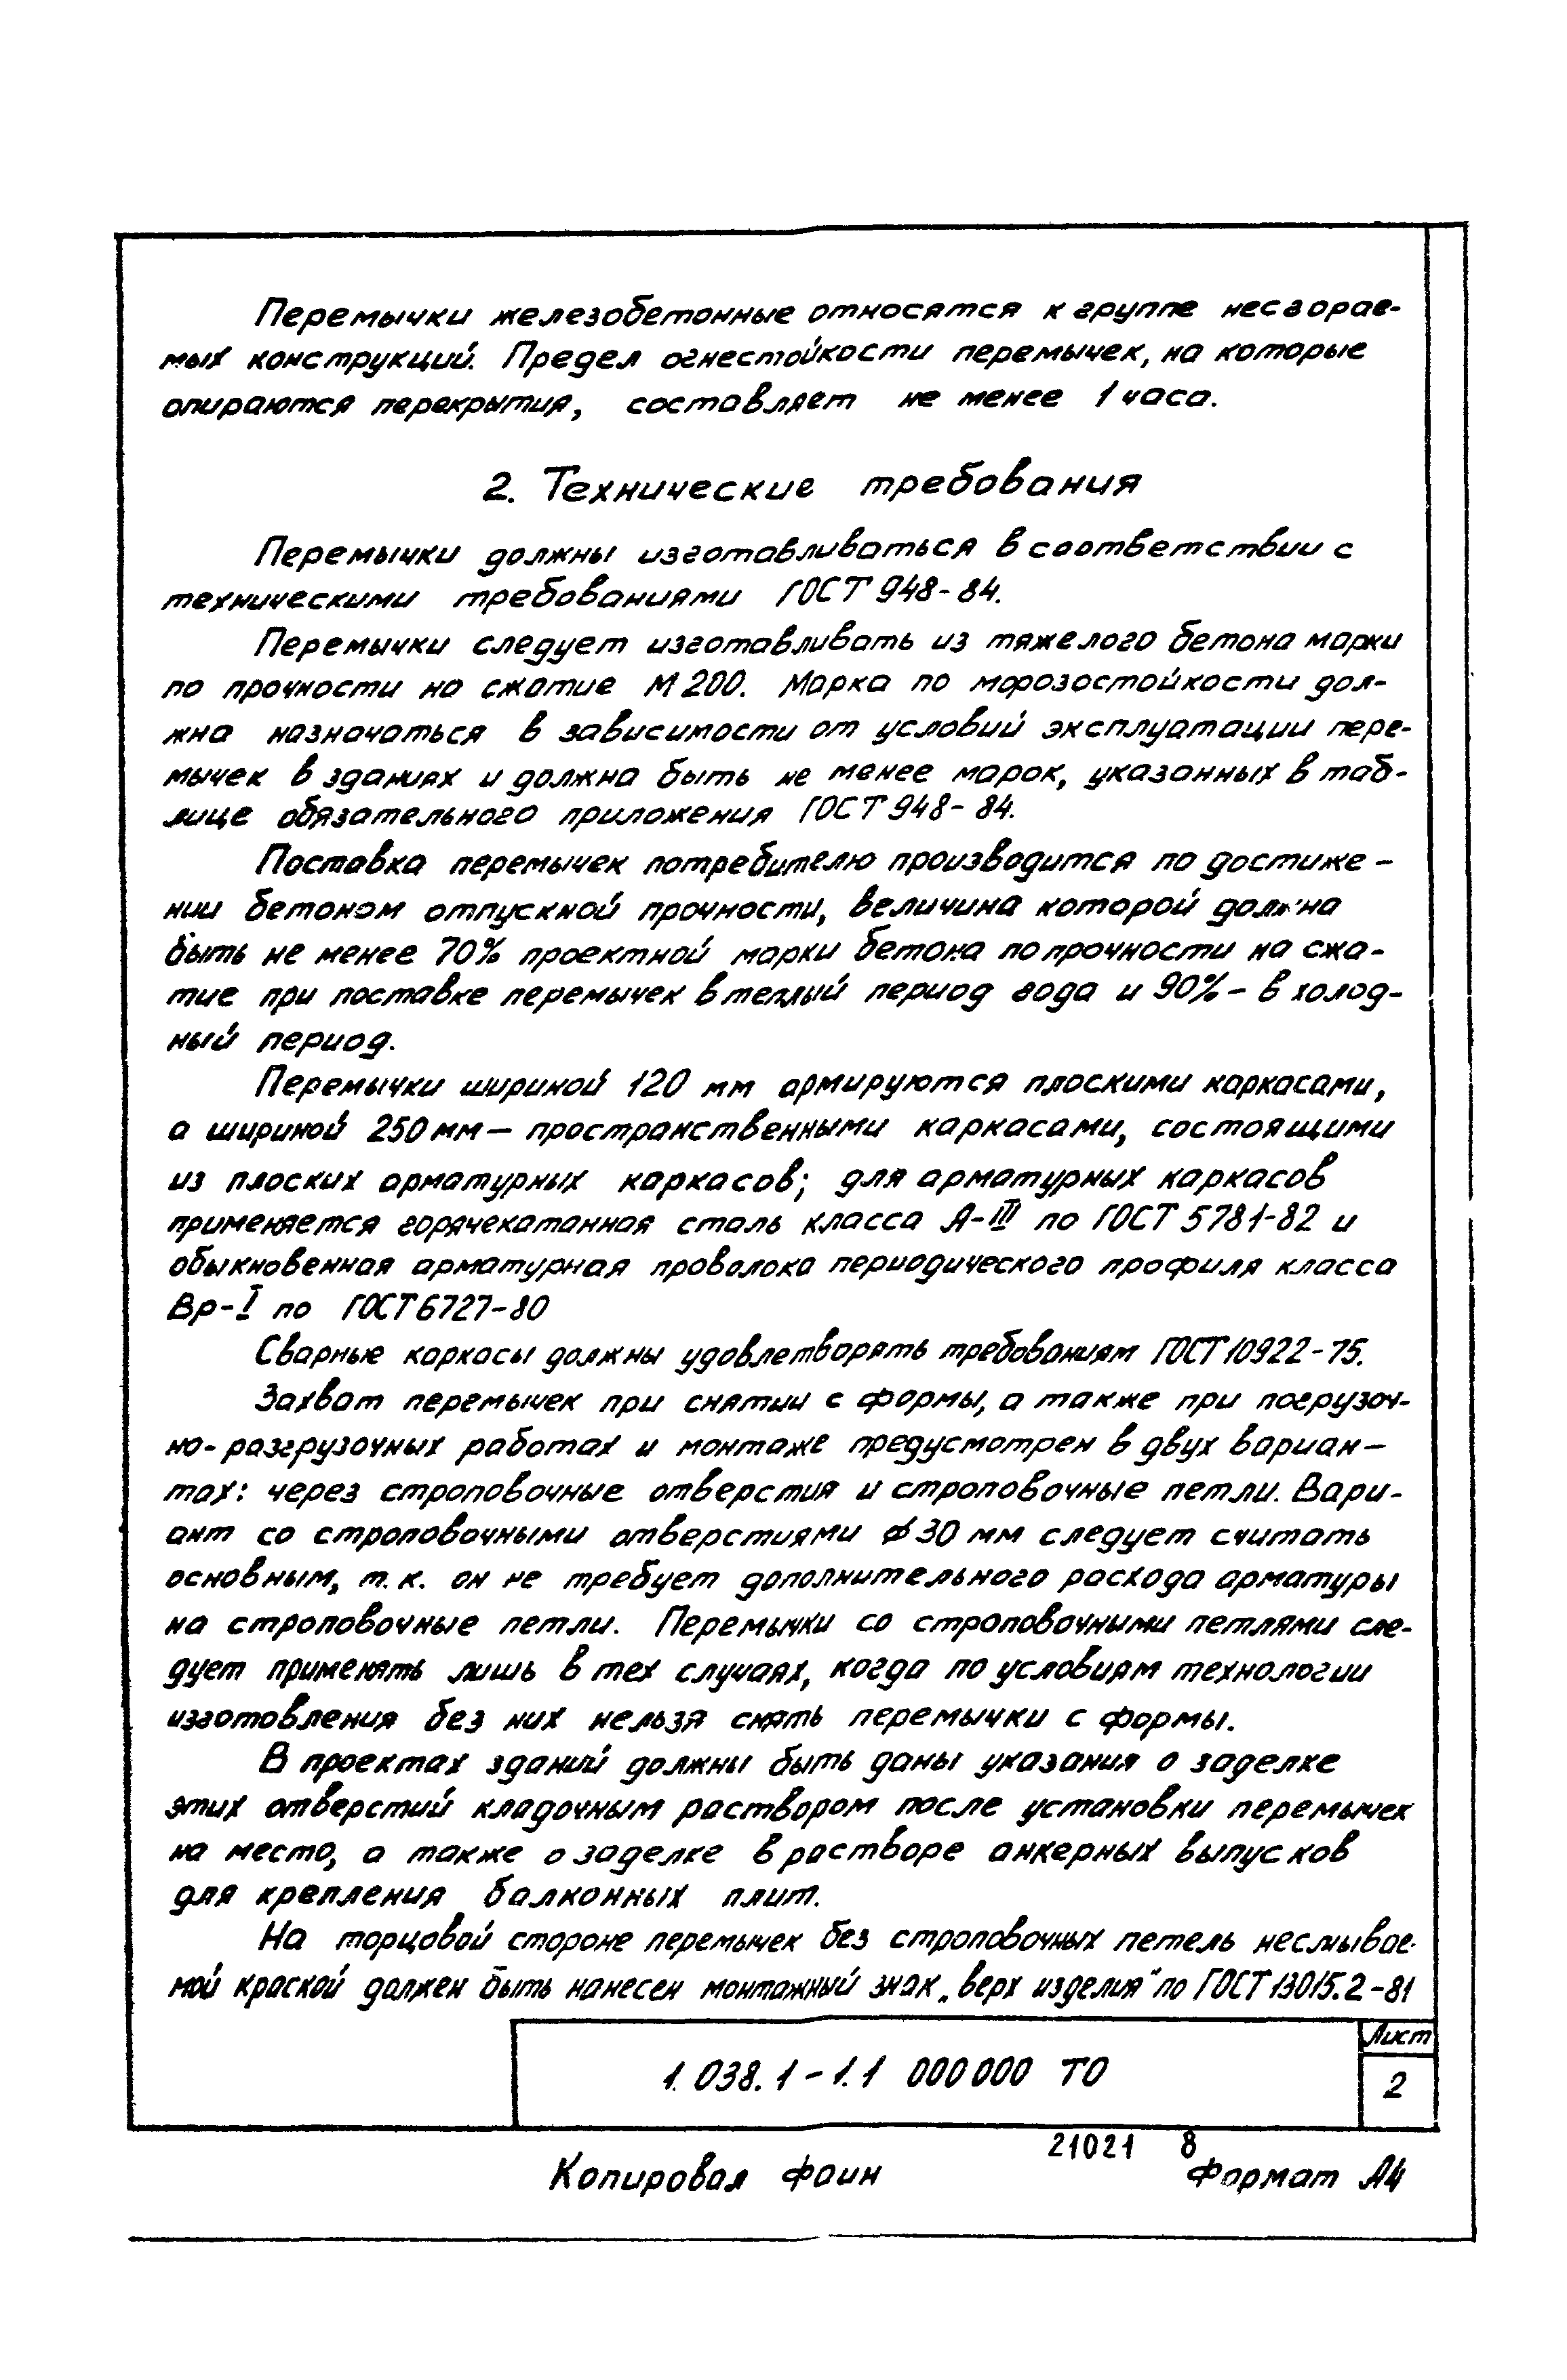 Перемычки железобетонные относятся к группе несгорае-
мых конструкций. Предел огнестойкости перемычек, на которые
опираются перекрытия, составляет не менее 1 часа.
2. Технические требования
Перемычки должны изготавливаться в соответствии с
техническими требованиями ГОСТ 948-84.
Перемычки следует изготавливать из тяжелого бетона марки
по прочности на сжатие М 200. Марка по морозостойкости дол-
жна назначаться в зависимости от условий эксплуатации пере-
мычек в зданиях и должна быть не менее марок, указанных в таб-
лице обязательного приложения ГОСТ 948-84.
Поставка перемычек потребителю производится по достиже-
нии бетоном отпускной прочности, величина которой должна
быть не менее 70% проектной марки бетона по прочности на сжа-
тие при поставке перемычек в теплый период года и 90% - в холод-
ный период.
Перемычки шириной 120 мм армируются плоскими каркасами,
а шириной 250 мм — пространственными каркасами, состоящими
из плоских арматурных каркасов; для арматурных каркасов
применяется горячекатанная сталь класса А-III по ГОСТ 5781-82 и
обыкновенная арматурная проволока периодического профиля класса
Вр-I по ГОСТ 6727-80
Сварные каркасы должны удовлетворять требованиям ГОСТ 10922-75.
Захват перемычек при снятии с формы, а также при погрузоч-
но-разгрузочных работах и монтаже предусмотрен в двух вариан-
тах: через строповочные отверстия и строповочные петли. Вари-
ант со строповочными отверстиями ⌀ 30 мм следует считать
основным, т.к. он не требует дополнительного расхода арматуры
на строповочные петли. Перемычки со строповочными петлями сле-
дует применять лишь в тех случаях, когда по условиям технологии
изготовления без них нельзя снять перемычки с формы.
В проектах зданий должны быть даны указания о заделке
этих отверстий кладочным раствором после установки перемычек
на место, а также о заделке в растворе анкерных выпусков
для крепления балконных плит.
На торцовой стороне перемычек без строповочных петель несмывае-
мой краской должен быть нанесен монтажный знак „верх изделия" по ГОСТ 13015.2-81
1.038.1-1.1 000000 ТО
Лист
2
21021 8
Копировал Фаин
Формат А4